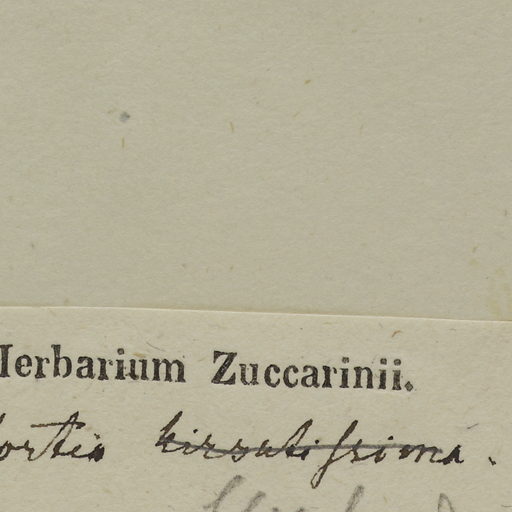 Herbarium Zuccarinii.
hirsutissima.